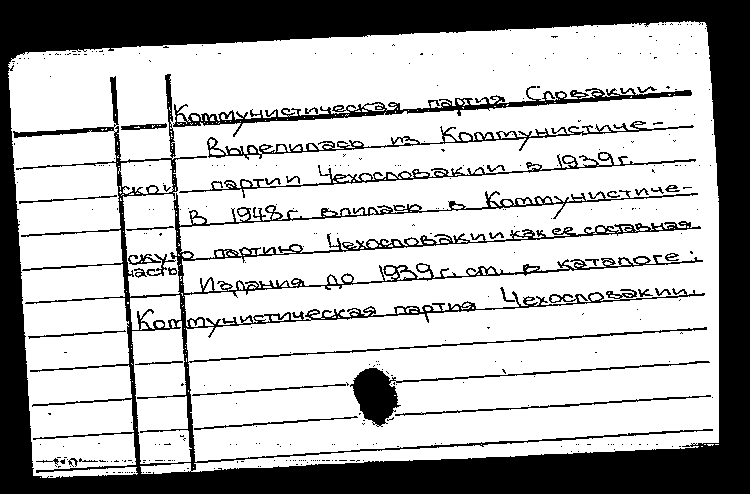 Коммунистическая партия Словакии.
Выделилась из Коммунистиче-
ской партии Чехословакии в 1939г.
В 1948г. влилась в Коммунистиче-
скую партию Чехословакии как ее составная
часть
Издания до 1939г. см. в каталоге:
Коммунистическая партия Чехословакии.